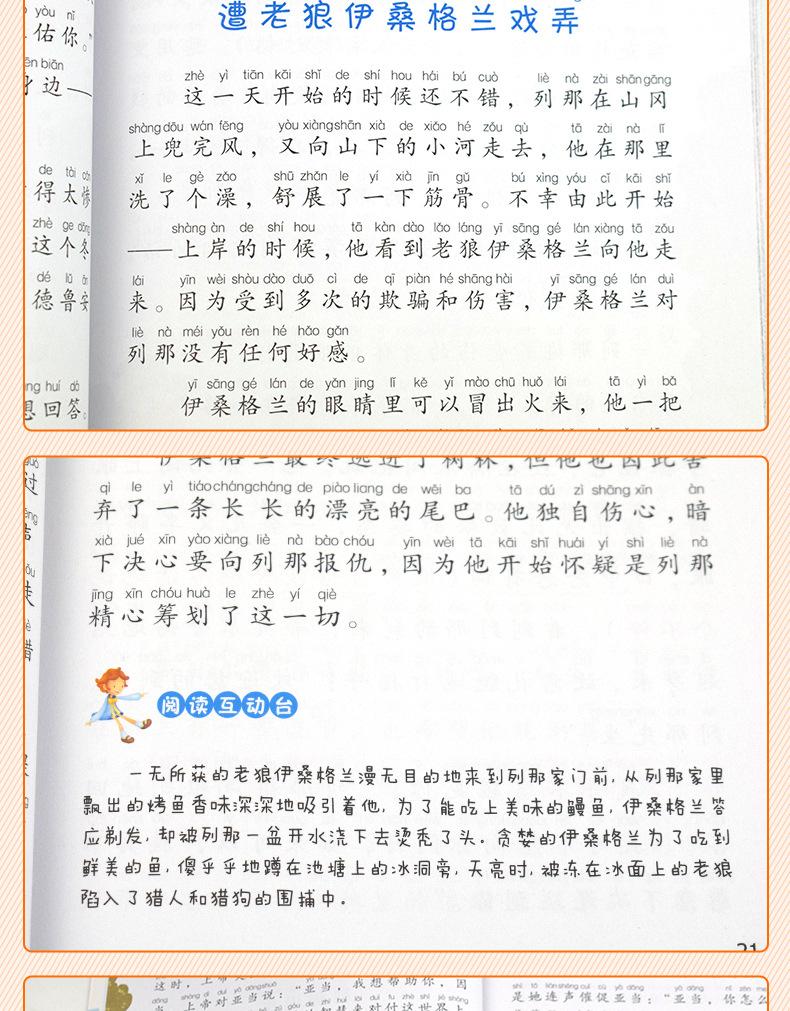 yòu nǐ
佑你。”
biān
身边——
de tài
得太惨
zhè ge
这个冬
dé lǔ ān
德鲁安
huí dá
想回答。
遭老狼伊桑格兰戏弄
zhè yì tiān kāi shǐ de shí hou hái bú cuò liè nà zài shāngāng
这一天开始的时候还不错，列那在山冈
shàng dōu wán fēng yòu xiàng shān xià de xiǎo hé zǒu qù tā zài nà lǐ
上兜完风，又向山下的小河走去，他在那里
xǐ le gè zǎo shū zhǎn le yí xià jīn gǔ bú xìng yóu cǐ kāi shǐ
洗了个澡，舒展了一下筋骨。不幸由此开始
shàng àn de shí hou tā kàn dào lǎo láng yī sāng gé lán xiàng tā zǒu
——上岸的时候，他看到老狼伊桑格兰向他走
lái yīn wèi shòu dào duō cì de qī piàn hé shāng hài yī sāng gé lán duì
来。因为受到多次的欺骗和伤害，伊桑格兰对
liè nà méi yǒu rèn hé hǎo gǎn
列那没有任何好感。
yī sāng gé lán de yǎn jing lǐ kě yǐ mào chū huǒ lái tā yì bǎ
伊桑格兰的眼睛里可以冒出火来，他一把
伊桑格兰最终逃进了树林，但他也因此害
qì le yì tiáo cháng cháng de piào liang de wěi ba tā dú zì shāng xīn àn
弃了一条长长的漂亮的尾巴。他独自伤心，暗
xià jué xīn yào xiàng liè nà bào chóu yīn wèi tā kāi shǐ huái yí shì liè nà
下决心要向列那报仇，因为他开始怀疑是列那
jīng xīn chóu huà le zhè yí qiè
精心筹划了这一切。
阅读互动台
一无所获的老狼伊桑格兰漫无目的地来到列那家门前，从列那家里
飘出的烤鱼香味深深地吸引着他，为了能吃上美味的鳗鱼，伊桑格兰答
应剃发，却被列那一盆开水浇下去烫秃了头。贪婪的伊桑格兰为了吃到
鲜美的鱼，傻乎乎地蹲在池塘上的冰洞旁，天亮时，被冻在冰面上的老狼
陷入了猎人和猎狗的围捕中。
21
这时，上帝
上帝对亚当说：“亚当，我想帮助你，因
是她连声催促亚当：“亚当，你怎么